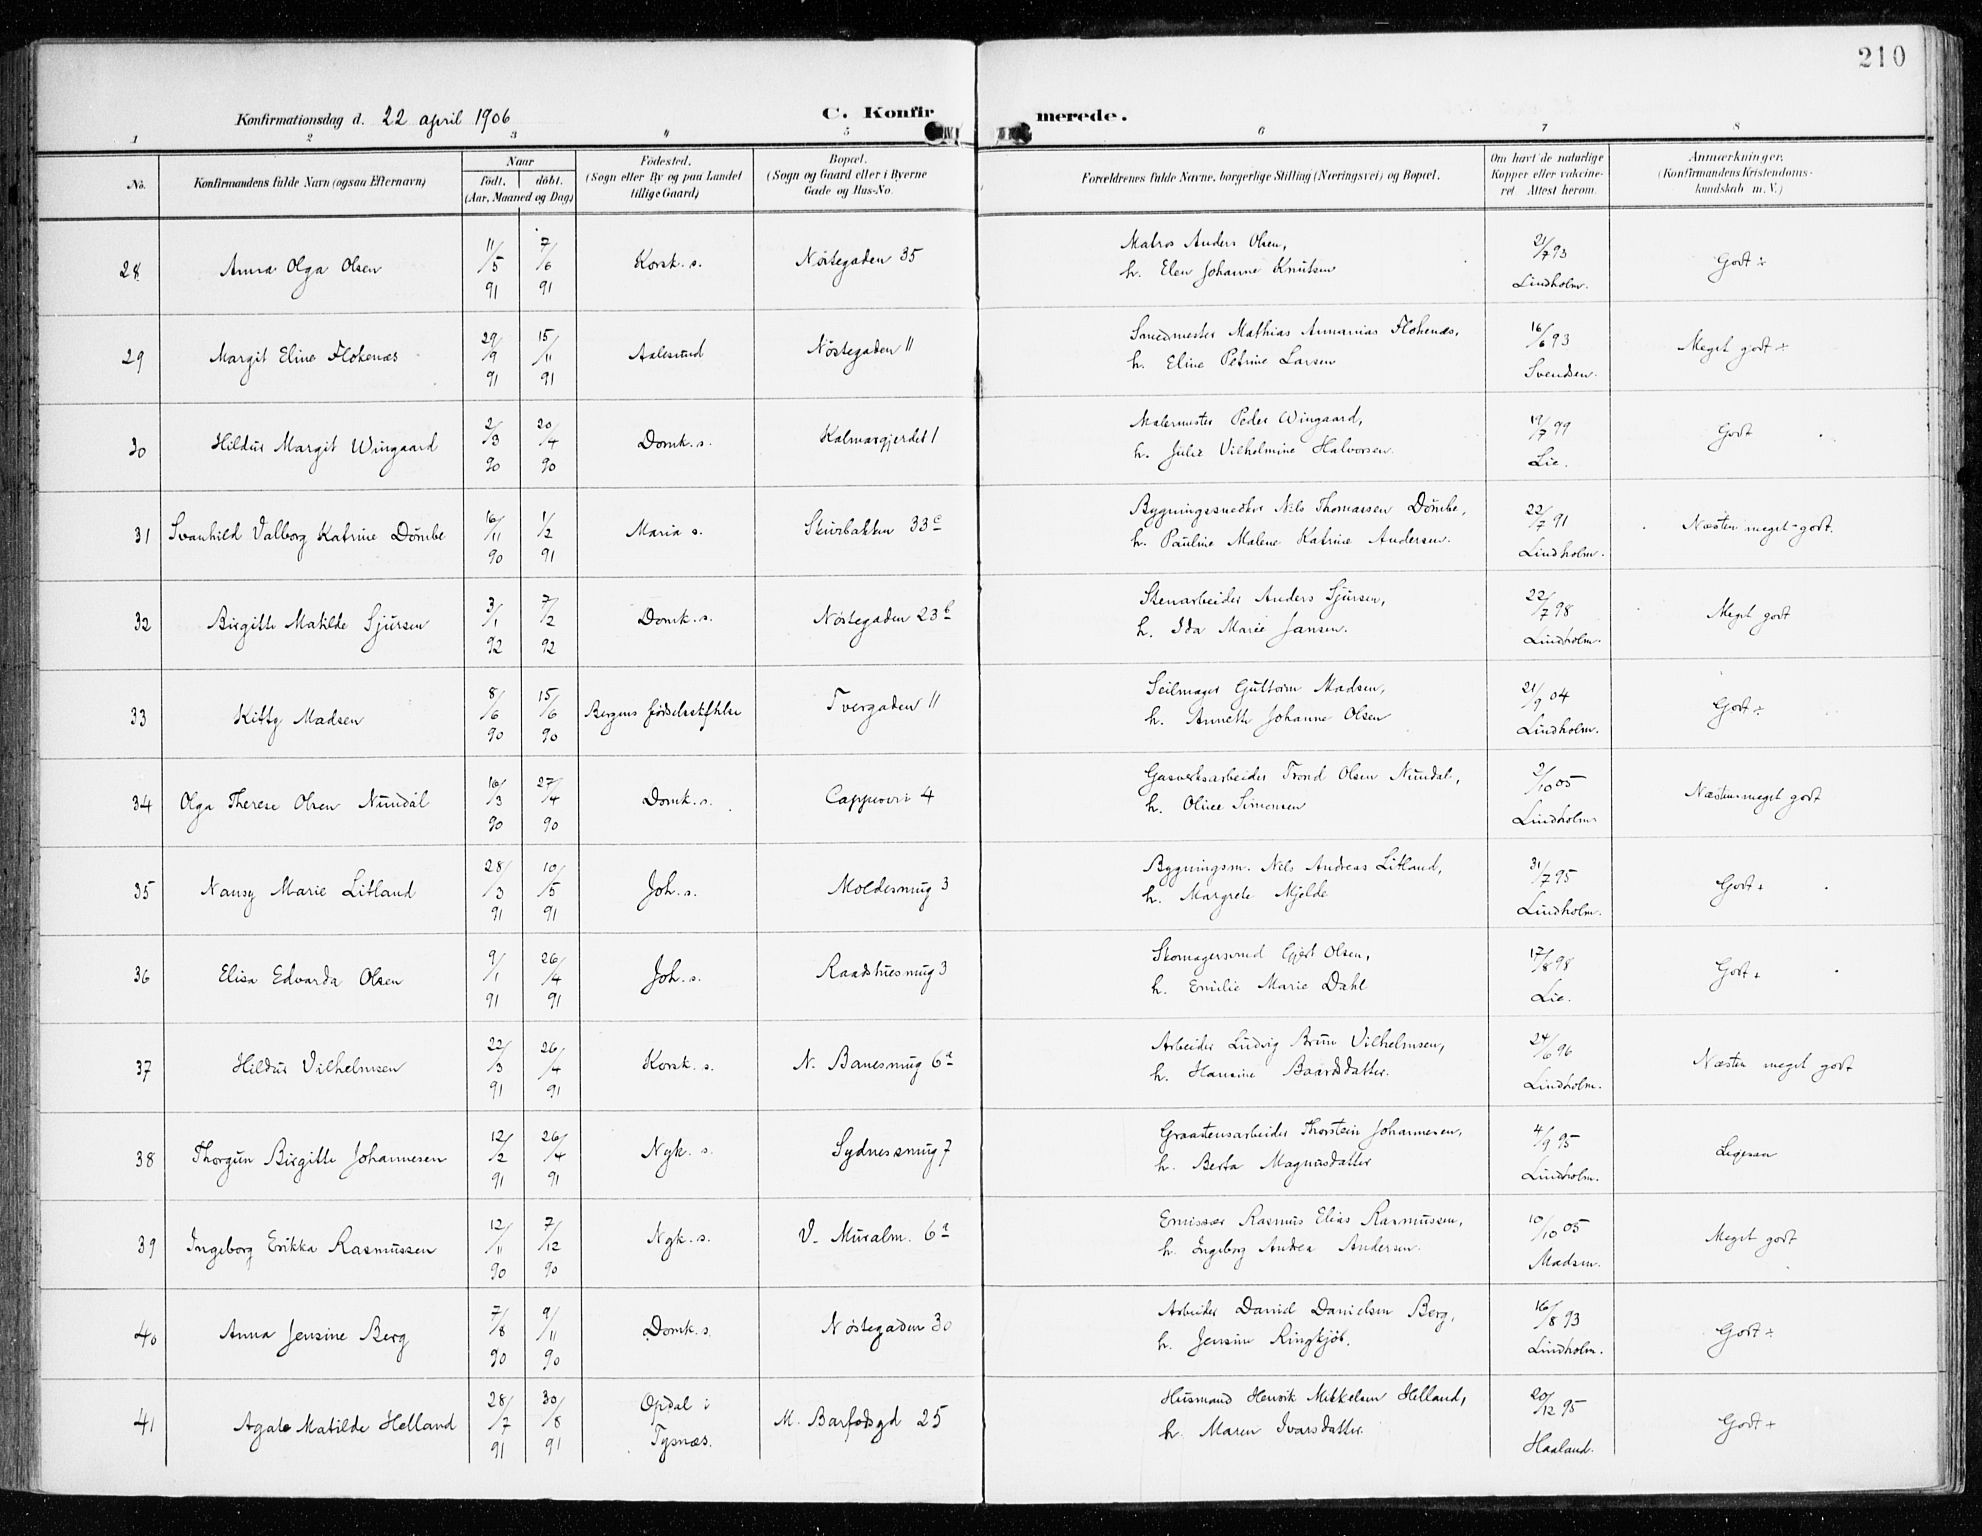 210
Konfirmationsdag d. 22 april 1906 C. Konfir merede.
1 2 3 " 5 6 7 8
No. Konfirmandens fulde Navn (ogsaa Efternavn) Naar Födt. döbt. (Aar, Maaned og Dag) Födested. (Sogn eller By og paa Landet tillige Gaard) Bopæl. (Sogn og Gaard eller i Byerne Gade og Hus-No. Forældrenes fulde Navne, borgerlige Stilling (Næringsvei) og Bopæl. Om havt de naturlige Kopper eller vakcineret Attest herom. Anmærkninger. (Konfirmandens Kristendomskundskab m. V.)
28 Anna Olga Olsen 11/5 91 7/6 91 Korsk. s. Nöstegaden 35 Matros Anders Olsen,
h. Elen Johanne Knutsen 21/7 93 Lindholm. Godt ÷
29 Margit Eline Flokenæs 29/9 91 15/11 91 Aalesund Nöstegaden 11 Smedmester Mathias Annanias Flokenæs,
h. Eline Petrine Larsen 16/6 93 Svendsen. Meget godt ÷
30 Hildur Margit Wingaard 2/3 90 20/4 90 Domk. s. Kalmargjerdet 1 Malermester Peder Wingaard,
h. Julie Vilhelmine Halvorsen. 19/7 99 Lie. Godt
31 Svanhild Valborg Katrine Dömbe 16/11 90 1/2 91 Maria s. Skivebakken 33c Bygningssnedker Nils Thomassen Dömbe,
h. Pauline Malene Katrine Andersen. 22/7 91 Lindholm. Næsten meget godt.
32 Birgitte Matilde Sjursen 3/1 92 7/2 92 Domk. s. Nöstegaden 23b Stenarbeider Anders Sjursen,
h. Ida Marie Jansen. 22/7 98 Lindholm. Meget godt
33 Kitty Madsen 8/6 90 15/6 90 Bergens födselsstiftelse Tvergaden 11 Seilmager Guttorm Madsen,
h. Anneth Johanne Olsen 21/9 04 Lindholm. Godt ÷
34 Olga Therese Olsen Nundal 16/3 90 27/4 90 Domk. s. Cappevei 4 Gasverksarbeider Trond Olsen Nundal,
h. Oline Simonsen 2/10 05 Lindholm Næsten meget godt
35 Nansy Marie Litland 28/3 91 10/5 91 Joh. s. Moldesmug 3 Bygningsm. Nels Andreas Litland,
h. Margrete Mjelde 31/7 95 Lindholm. Godt +
36 Elisa Edvarda Olsen 9/1 91 26/4 91 Joh. s. Raadstuesmug 3 Skomagersvend Gjert Olsen,
h. Emilie Marie Dahl 17/8 98 Lie. Godt +
37 Hildur Vilhelmsen 22/3 91 26/4 91 Korsk. s. N. Banesmug 6a Arbeider Ludvig Brun Vilhelmsen,
h. Hansine Baardsdatter. 24/6 96 Lindholm. Næsten meget godt
38 Thorgun Birgitte Johannesen 12/2 91 26/4 91 Nyk. s. Sydnessmug 7 Graastensarbeider Thorstein Johannesen,
h. Berta Magnusdatter 4/9 95 Lindholm. Ligesaa
39 Ingeborg Erikka Rasmussen 12/11 90 7/12 90 Nyk. s. V. Muralm. 6a Emissær Rasmus Elias Rasmussen,
h. Ingeborg Andrea Andersen. 10/10 05 Madsen. Meget godt
40 Anna Jensine Berg 7/8 90 9/11 90 Domk. s. Nöstegaden 30 Arbeider Daniel Danielsen Berg,
h. Jensine Ringkjöb. 16/8 93 Lindholm. Godt ÷
41 Agate Matilde Helland 28/7 91 30/8 91 Opdal i Tysnæs. M. Barfodsgd 25 Husmand Henrik Mikkelsen Helland,
h. Maren Ivarsdatter. 20/12 95 Haaland. Godt +